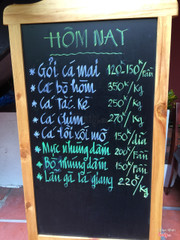 HÔM NAY
* Gỏi cá mai 120-150K/Phần
* Cá bò hòm 350K/Kg
* Cá tắc kè 250K/Kg
* Cá chim 270K/Kg
* Cá tôi xối mỡ 150K/dĩa
* Mực nhúng dấm 200K/Phần
* Bò nhúng dấm 150K/Phần
* Lẩu gà lá giang 220K/Kg